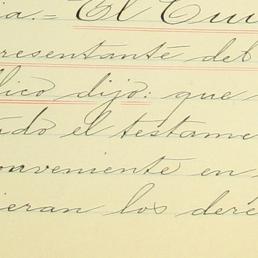 ia.= El Ciu
resentante del
lico dijo: que
ado el testame
onveniente en
ieran los dere